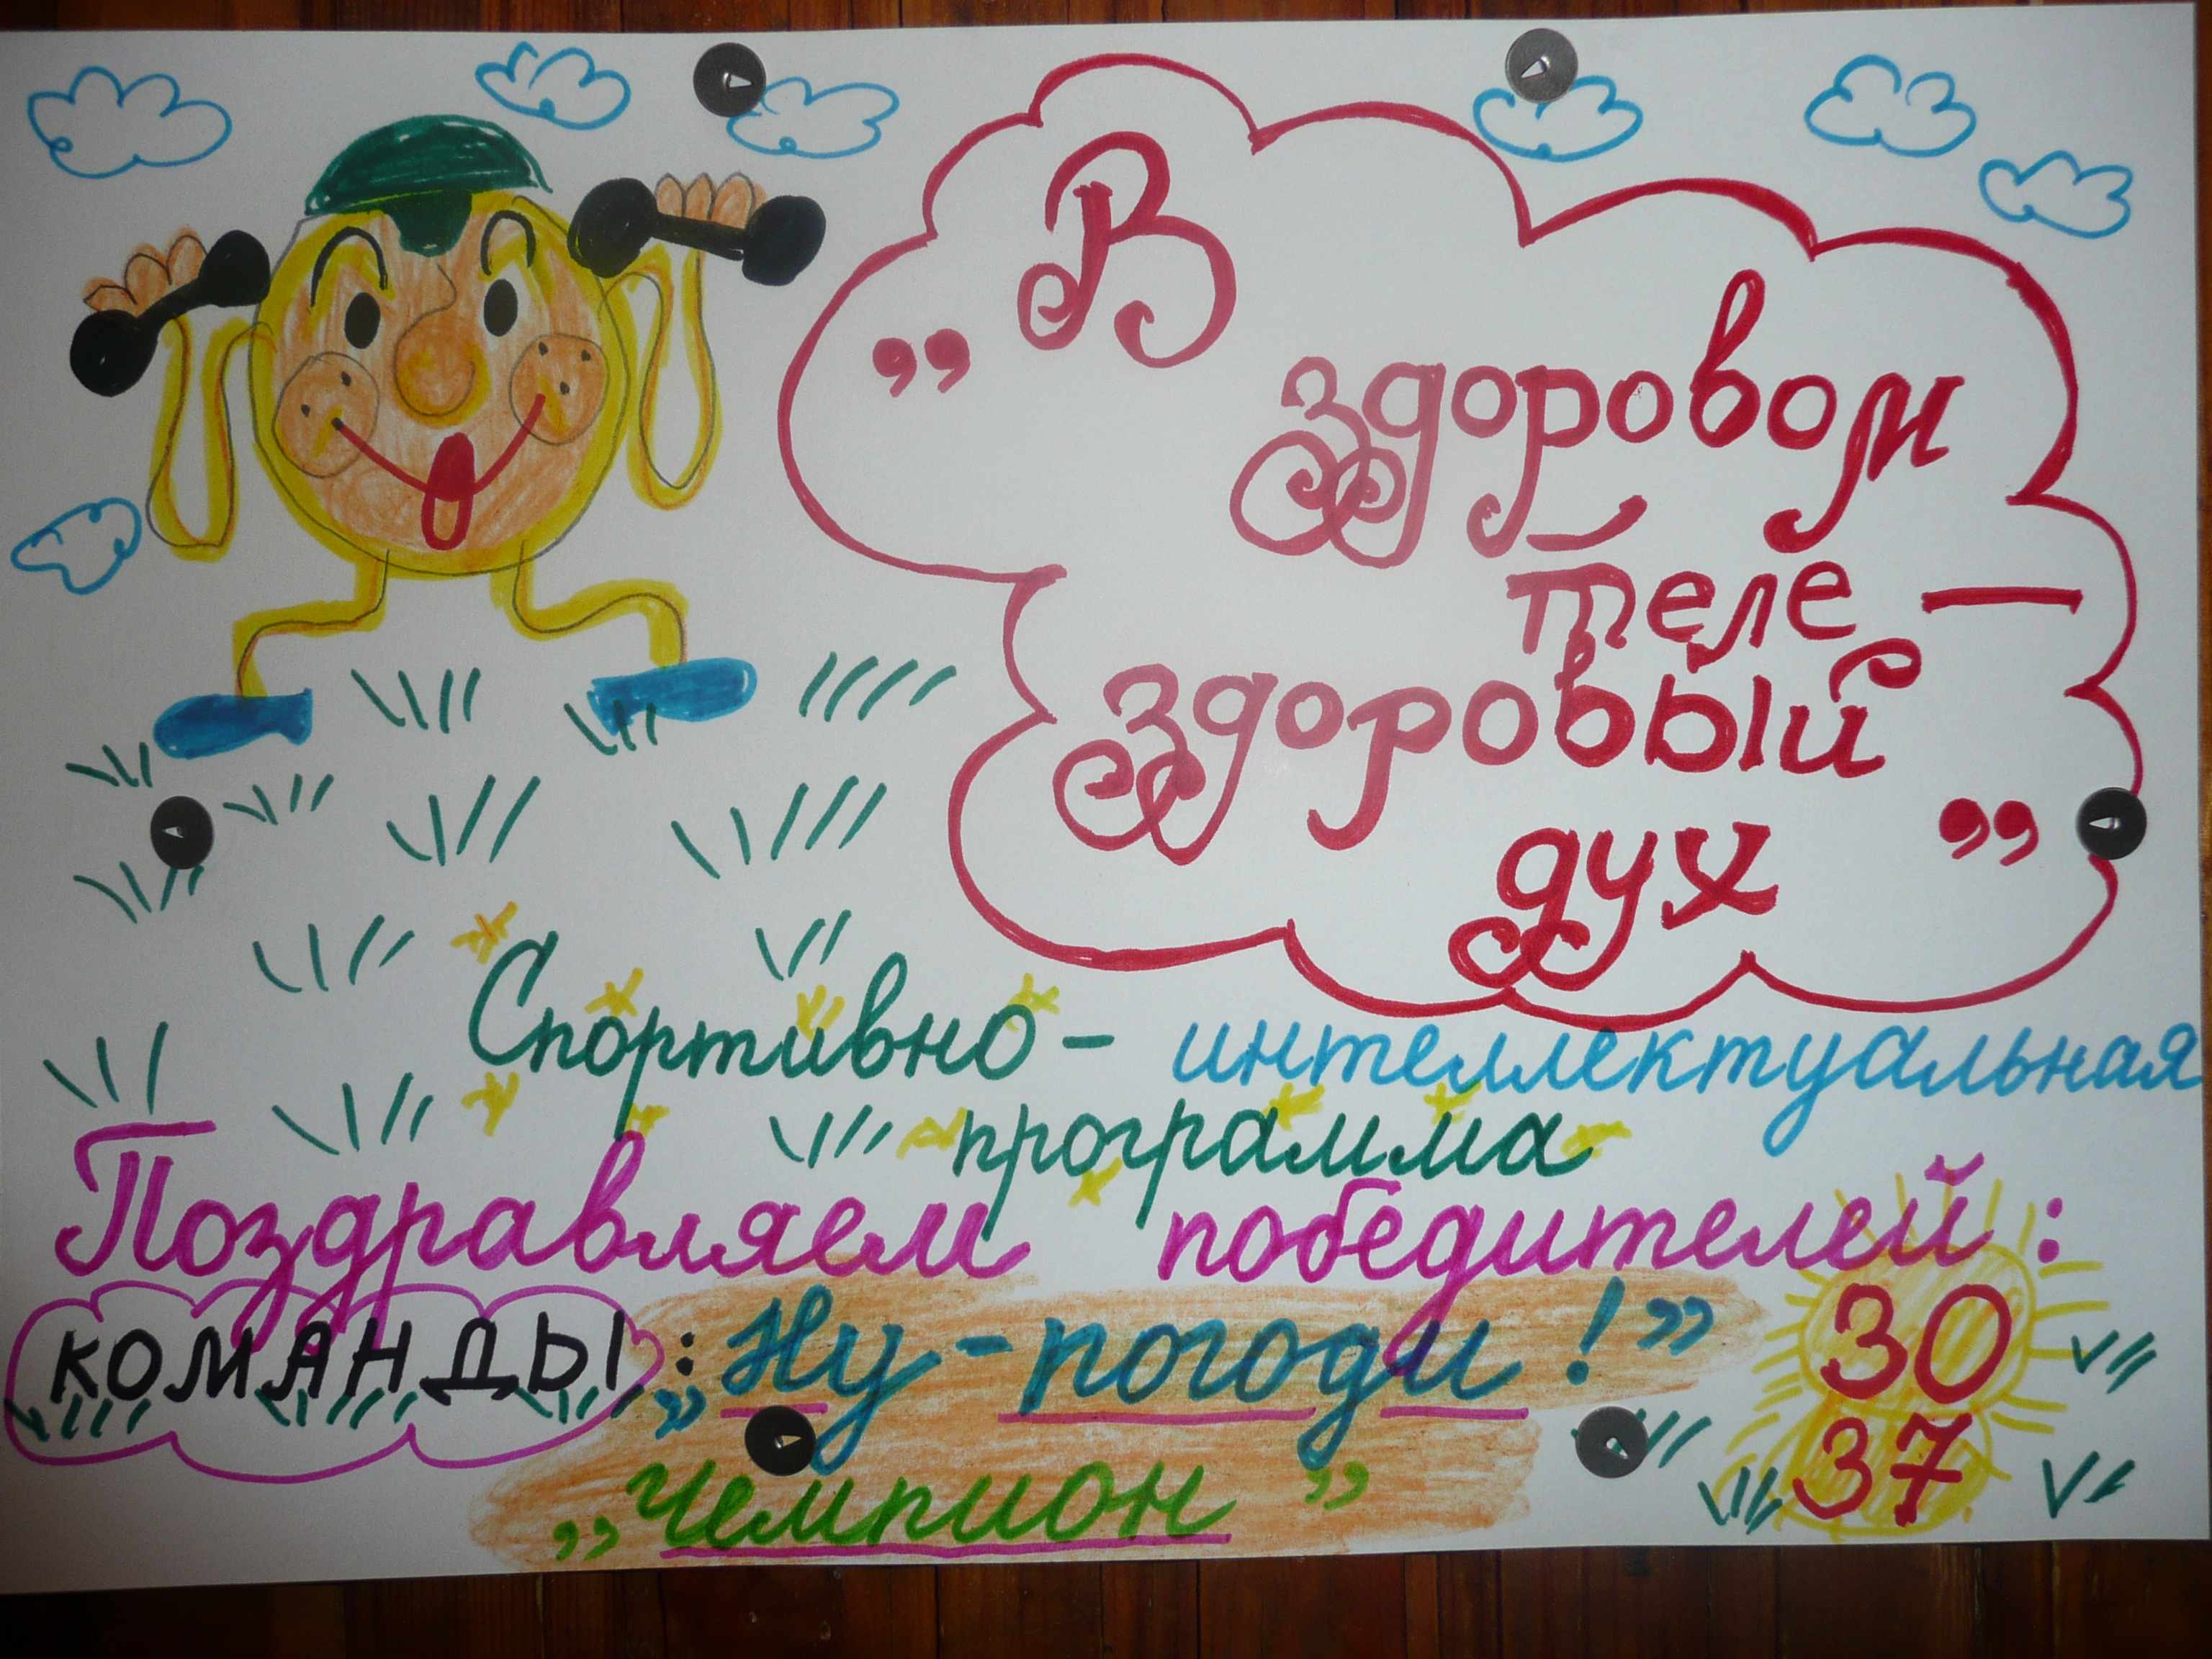 „ В
здоровом
теле —
здоровый
дух ”
Спортивно - интеллектуальная
программа
Поздравляем победителей :
КОМАНДЫ : „ Ну - погоди ! ” 30
„ Чемпион ” 37